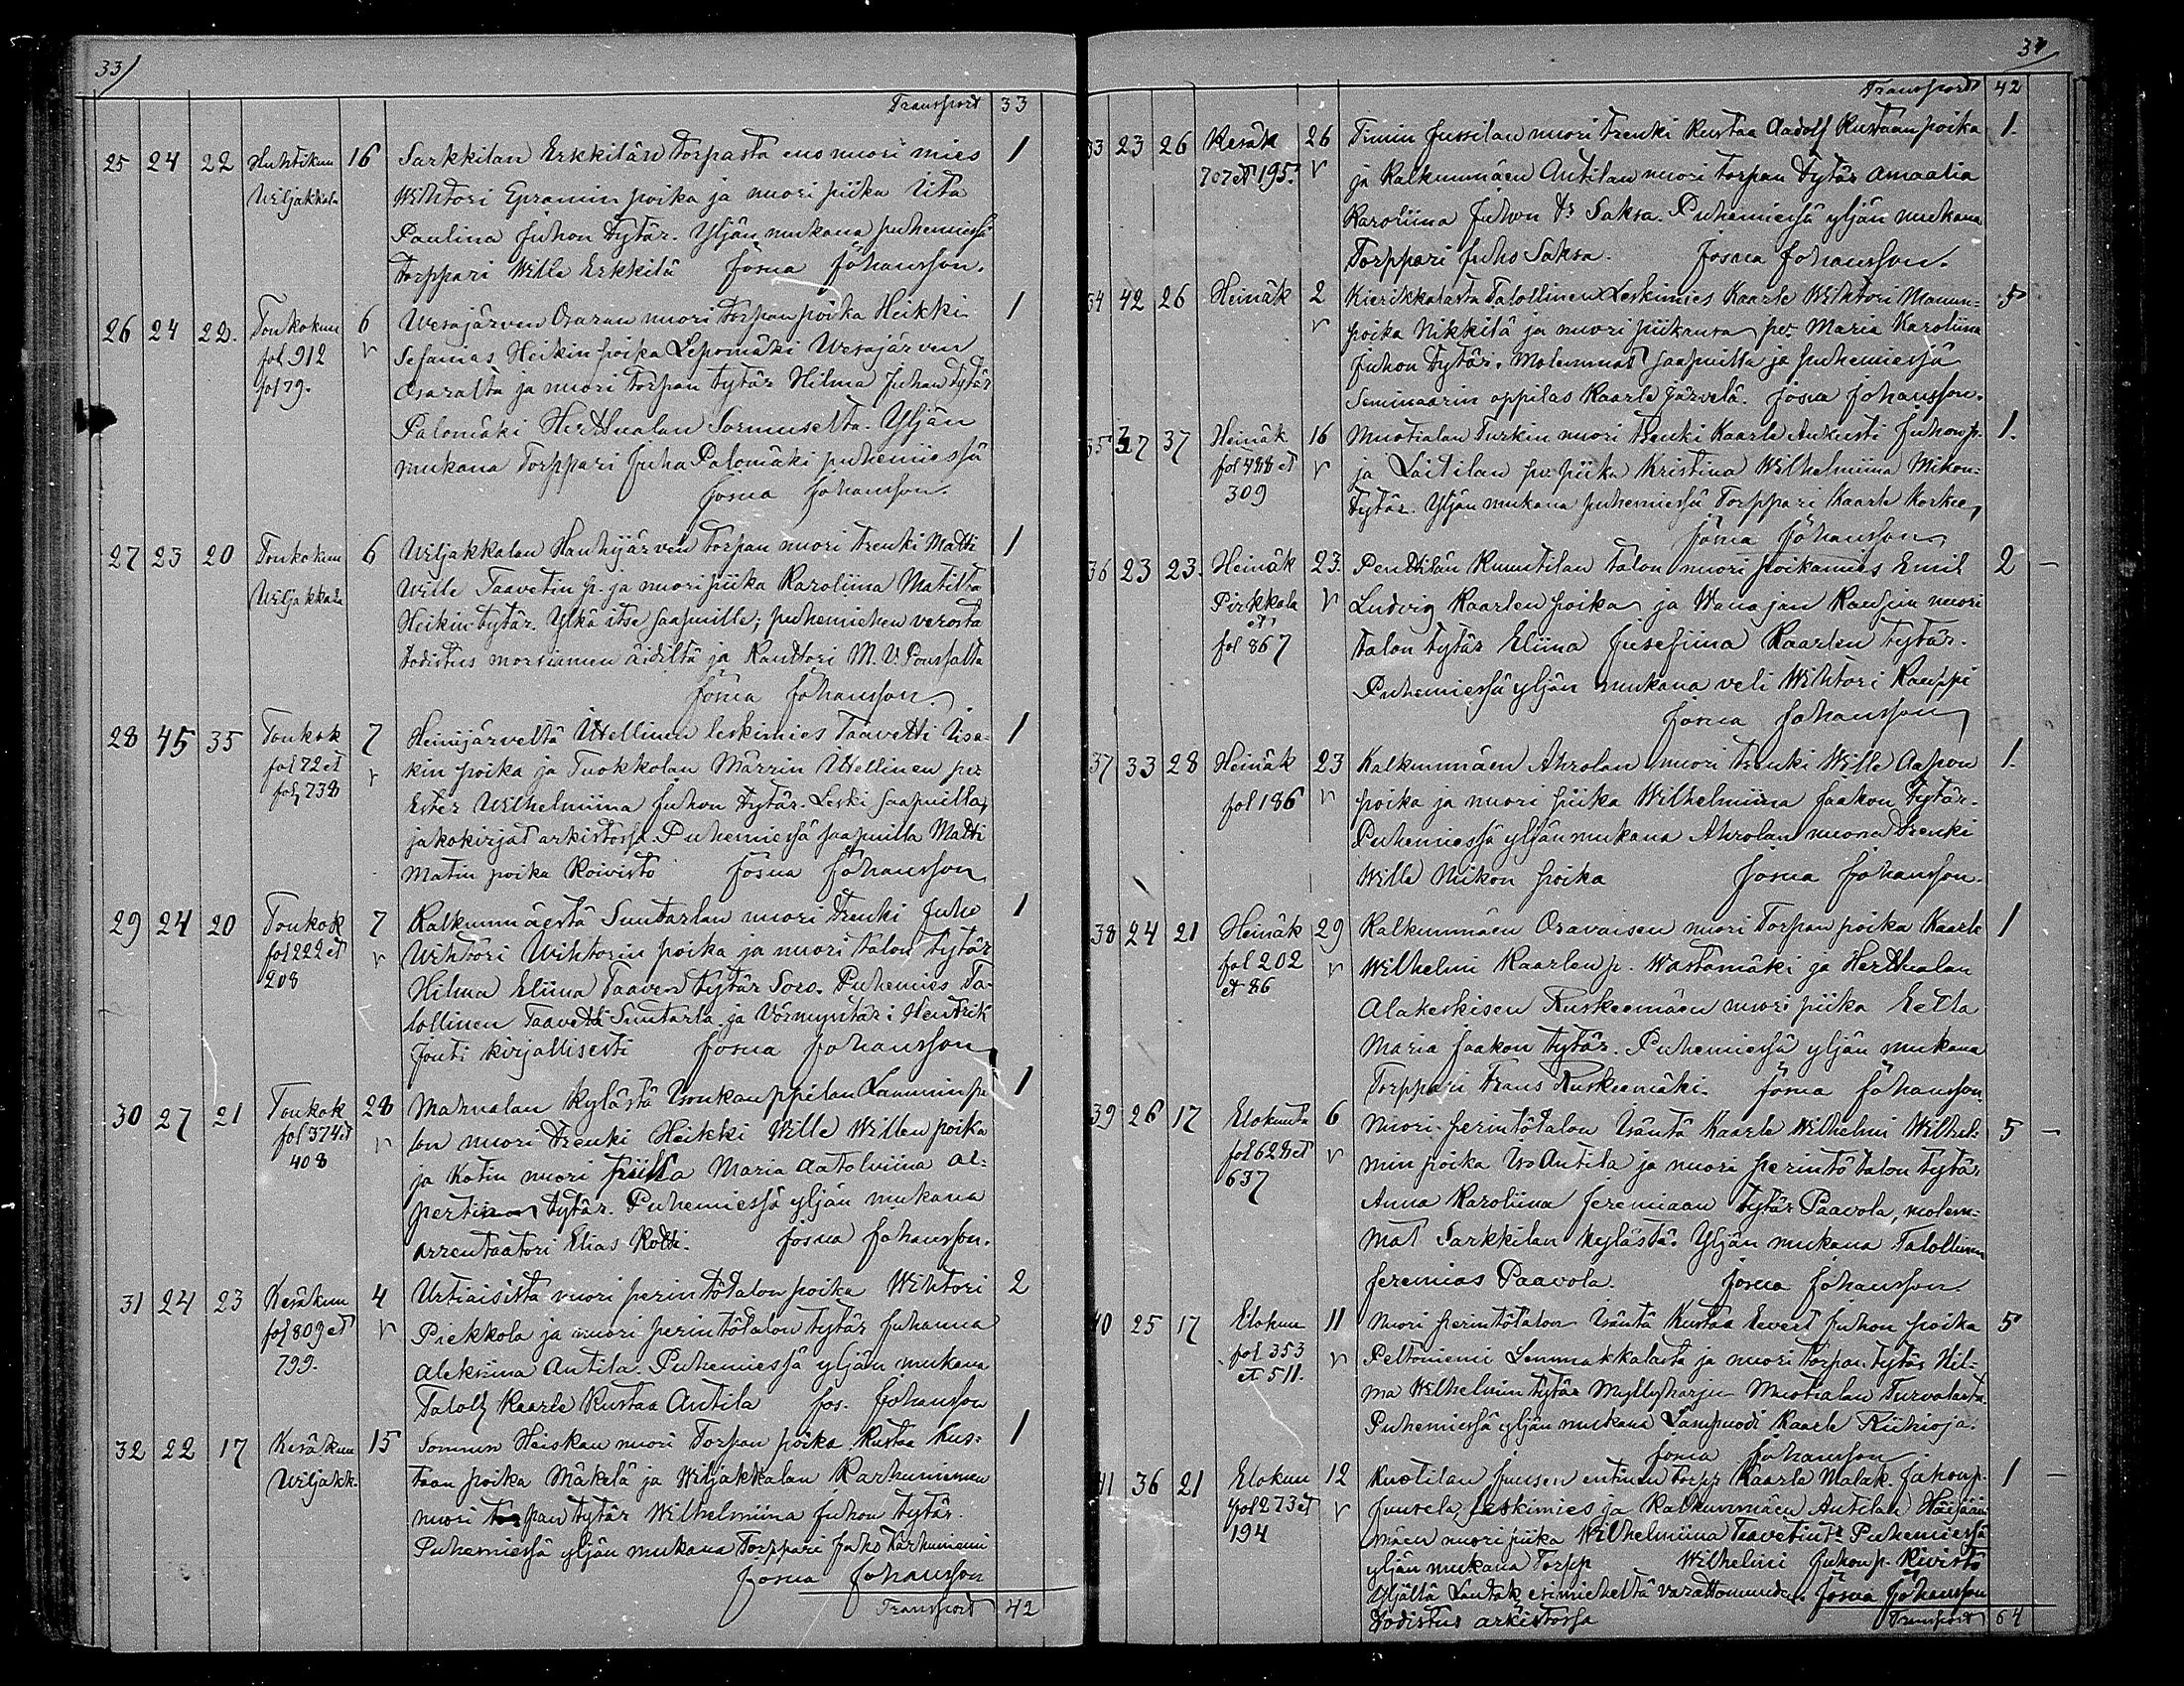 33/
Transport 33
25 24 22 Huhtikuu 16 Sarkkilan Erkkilän torpasta ens nuori mies 1
Wiljakkala Wihtori Epramin poika ja nuori piika Iita
Paulina Juhon tytär. Yljän mukana puhemiessä
torppari Wille Erkkilä Josua Johansson.
26 24 22. Toukokuu 6 Wesajärven Osaran nuori torpan poika Heikki 1
fol 912 v Sefanias Heikin poika Lepomäki Wesajärven
fol 79. Osaralta ja nuori torpan tytär Hilma Juhan tytär
Palomäki Herttualan Sormuselta. Yljän
mukana Torppari Juha Palomäki puhemiessä
Josua Johansson.
27 23 20 Toukokuu 6 Wiljakkalan Hanhijärven torpan nuori trenki Matti 1
Wiljakkala Wille Taavetin p. ja nuori piika Karoliina Matilta
Heikin tytär. Ylkä itse saapuille; puhemiehen verosta
todistus morsiamen äidiltä ja Kanttori M. V. Ponsalta
Josua Johansson.
28 45 35 Toukok 7 Heinijärveltä Itellinen leskimies Taavetti Iisa- 1
fol 72 et v kin poika ja Tuokkolan Märrin Itellinen per
fol 738 Ester Wilhelmiina Juhon tytär. Leski saapuilla,
jakokirjat arkistossa. Puhemiessä saapuilla Matti
Matin poika Koivisto Josua Johansson
29 24 20 Toukok 7 Kalkunmäestä Suntarlan nuori trenki Juho 1
fol 222 et v Wihtori Wihtorin poika ja nuori talon tytär
208 Hilma Eliina Taavetin tytär Soro. Puhemies Ta-
lollinen Taavetti Suntarla ja Vörmyntäri Hentrik
Jouti kirjallisesti Josua Johansson
30 27 21 Toukok 28 Mahnalan kylästä Uonkauppilan Lamminpe 1
fol 374 et v lon nuori trenki Heikki Wille Willen poika
408 ja Kotin nuori piika Maria Aatolviina Al-
pertin tytär. Puhemiessä yljän mukana
arrentaatori Elias Kotti. Josua Johansson.
31 24 23 Kesäkuu 4 Urtiaisista nuori perintötalon poika Wihtori 2
fol 809 et v Piekkola ja nuori perintötalon tytär Juhanna
799. Aleksiina Antila. Puhemiessä yljän mukana
Taloll Kaarle Kustaa Antila Jos. Johansson
32 22 17 Kesäkuu 15 Sommun Haiskan nuori Torpan poika Kustaa Kus- 1
Wiljakk. taan poika Mäkelä ja Wiljakkalan Karhuniemen
nuori torpan tytär Wilhelmiina Juhon tytär.
Puhemiessä yljän mukana Torppari Juho Karhuniemi
Josua Johansson
Transport 42
34
Transport 42
33 23 26 Kesäk 26 Timin Jussilan nuori trenki Kustaa Aadolf Kustaan poika 1.
707 et 195. v ja Kalkunmäen Antilan nuori torpan tytär Amaalia
Karoliina Juhon tr Saksa. Puhemiessä yljän mukana
Torppari Juho Saksa. Josua Johansson.
34 42 26 Heinäk 2 Kierikkalasta Talollinen Leskimies Kaarle Wihtori Manun- 5
v poika Nikkilä ja nuori piikansa per Maria Karoliina
Juhon tytär. Molemmat saapuilla ja puhemiessä
Seminaarin oppilas Kaarle Järvelä. Josua Johansson.
35 37 37 Heinäk 16 Muotialan Turkin nuori trenki Kaarle Aukusti Juhon p. 1.
fol 488 et v ja Laitilan per piika Kristina Wilhelmiina Mikon-
309 tytär. Yljän mukana puhemiessä Torppari Kaarle Korkee,
Josua Johansson
36 23 23. Heinäk 23. Penttilän Kuuttilan talon nuori poikamies Emil 2 –
Pirkkala v Ludvig Kaarlen poika ja Wanajan Kaupin nuori
et
fol 867 talon tytär Eliina Jusefiina Kaarlen tytär.
Puhemiessä yljän mukana veli Wihtori Kauppi
Josua Johansson
37 33 28 Heinäk 23 Kalkunmäen Ahrolan nuori trenki Wille Aapon 1.
fol 186 v poika ja nuori piika Wilhelmiina Jaakon tytär.
Puhemiessä yljän mukana Ahrolan nuora trenki
Wille Mikon poika Josua Johansson.
38 24 21 Heinäk 29 Kalkunmäen Oravaisen nuori Torpan poika Kaarle 1
fol 202 v Wilhelmi Kaarlen p. Wastamäki ja Herttualan
et 86 Alakeskisen Ruskeemäen nuori piika Eetla
Maria Jaakon tytär. Puhemiessä yljän mukana
Torppari Frans Ruskeemäki. Josua Johansson
39 26 17 Elokuuta 6 Nuori perintötalon Isäntä Kaarle Wilhelmi Wilhel- 5 –
fol 628 et v min poika Iso Antila ja nuori perintötalon tytär
637 Anna Karoliina Jeremiaan tytär Paavola, molem-
mat Sarkkilan kylästä. Yljän mukana Talollinen
Jeremias Paavola. Josua Johansson.
40 25 17 Elokuu 11 Nuori perintötalon Isäntä Kustaa Evert Juhon poika 5
fol 353 v Peltoniemi Lemmakkalasta ja nuori torpan tytär Hil-
et 511. ma Wilhelmin tytär Myllyharju Muotialan Turvalasta.
Puhemiessä yljän mukana Lampuodi Kaarle Riihioja.
Josua Johansson
41 36 21 Elokuu 12 Knotilan Juusen entinen torpp. Kaarle Malak. Juhon p. 1 –
fol 273 et v Juusela, leskimies ja Kalkunmäen Antilan Häijään
194 mäen nuori piika Wilhelmiina Taavetin tr. Puhemiessä
yljän mukana Torpp Wilhelmi Juhon p. Kivistö
Yljältä Lautak. esimieheltä varattomuuden. Josua Johansson
todistus arkistossa Transport 64